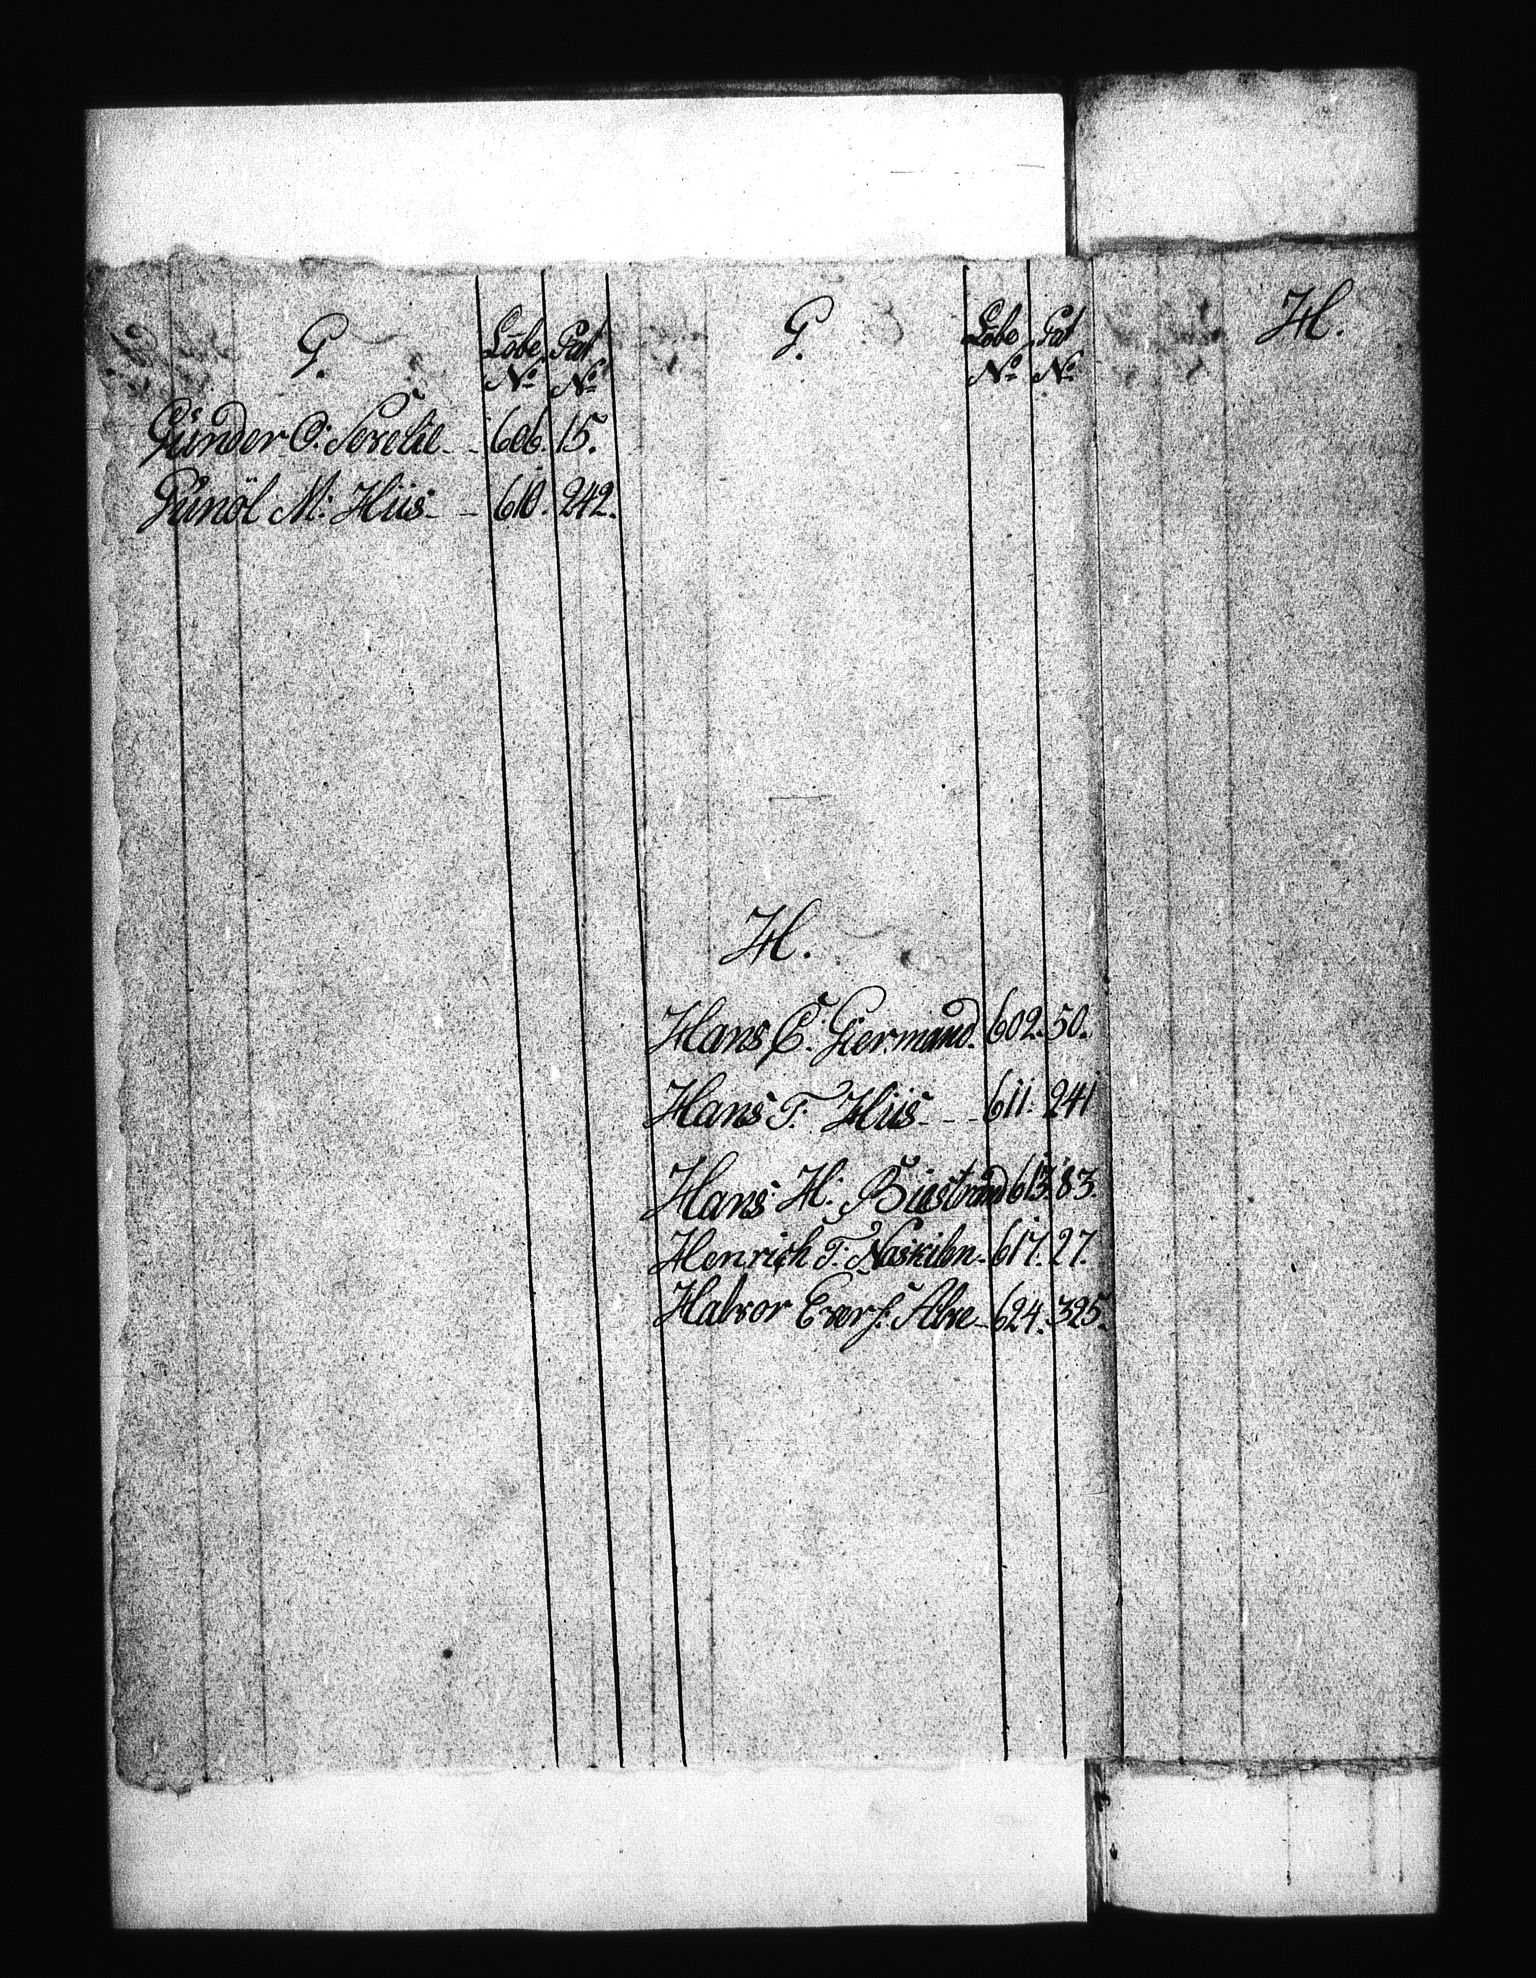 G.
Löbe Pat
No No
Gunder O: Serelie - - 606. 15.
Gunöl M: Hiis - - 610. 242.
G.
Löbe Pat
No No
H.
Hans C: Giermand. 602. 50.
Hans T. Hiis - - - 611. 241
Hans H: Buestrand 613. 83.
Henrich T: Naskilen - 617. 27.
Halvor Evers: Alve - 624. 325.
H.